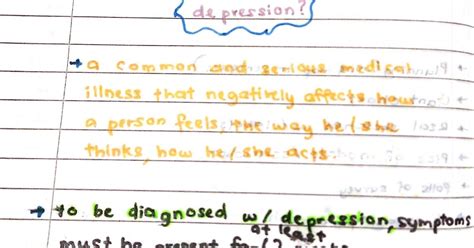 depression?
→ a common and serious medical
illness that negatively affects how
a person feels, the way he/she
thinks, how he/she acts.
→ to be diagnosed w/ depression, symptoms
at least
must be present for